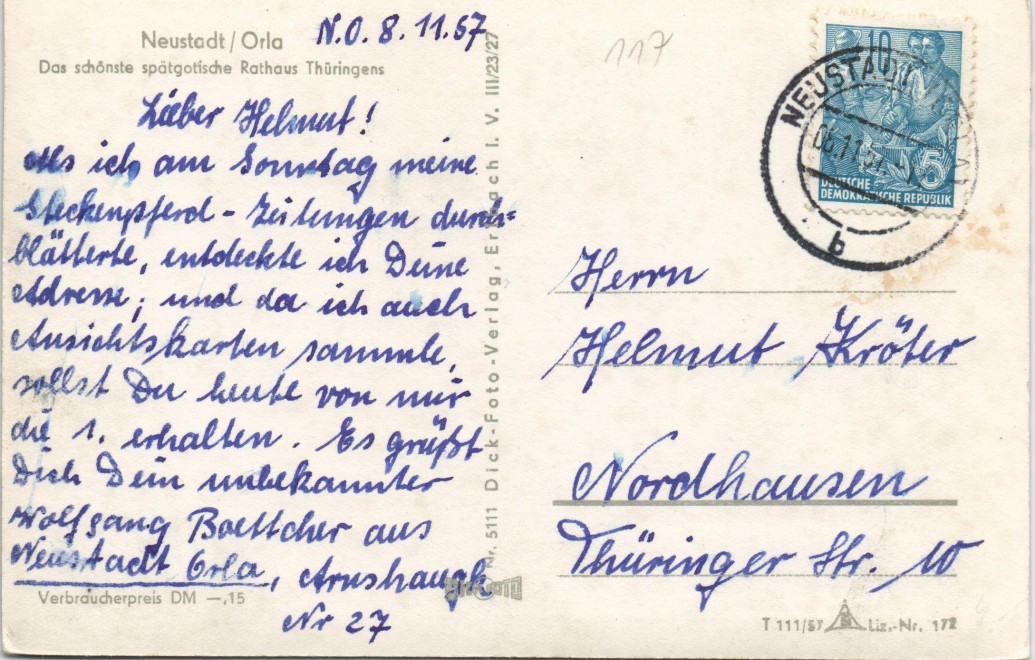 Neustadt / Orla
N.O. 8.11.57
Das schönste spätgotische Rathaus Thüringens
Lieber Helmut!
Als ich am Sonntag meine
Steckenpferd - Zeitungen durch=
blätterte, entdeckte ich Deine
Adresse; und da ich auch
Ansichtskarten sammle,
sollst Du heute von mir
die 1. erhalten. Es grüßt
Dich Dein unbekannter
Wolfgang Boettcher aus
Neustadt Orla, Arnshaugk
Nr 27
Verbraucherpreis DM —,15
Nr. 5111 Dick-Foto-Verlag, Erlbach i. V. III/23/27
117
10
5
DEUTSCHE
DEMOKRATISCHE REPUBLIK
NEUSTADT
b
Herrn
Helmut Kröter
Nordhausen
Thüringer Str. 10
T 111/57 Liz.-Nr. 172